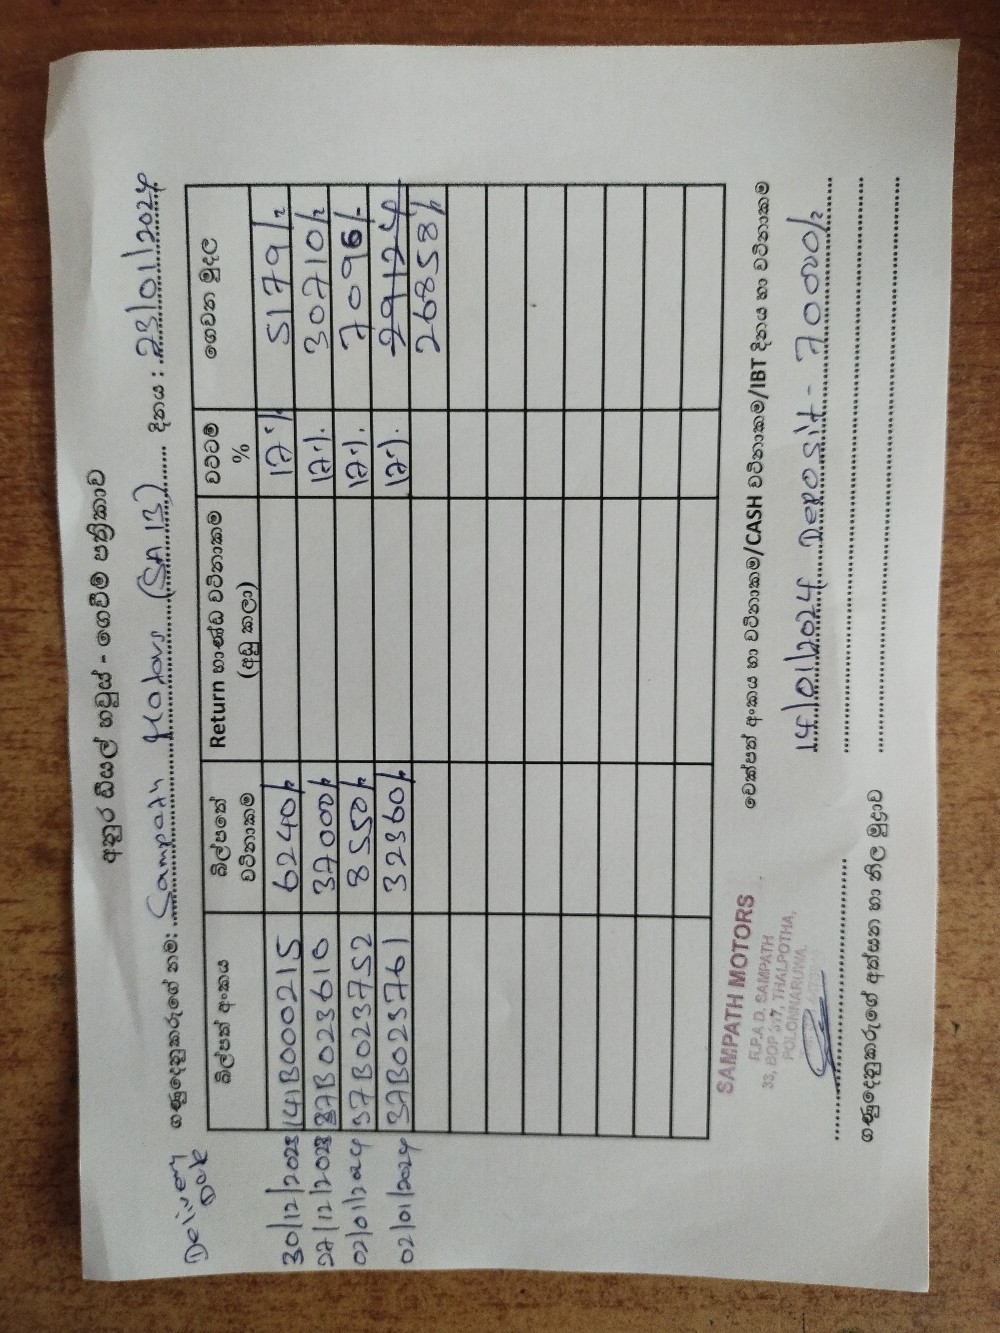 අනුර ඩීසල් හවුස් - ගෙවීම් පත්‍රිකාව
ගණුදෙනුකරුගේ නම: Sampath Motors (SA 13) දිනය : 23/01/2024
Delivery Date
බිල්පත් අංකය බිල්පතේ වටිනාකම Return භාණ්ඩ වටිනාකම (අඩු කලා) වට්ටම් % ගෙවන මුදල
30/12/2023 141B000215 6240/- 17% 5179/-
27/12/2023 37B023610 37000/- 17% 30710/-
02/01/2024 37B023752 8550/- 17% 7096/-
02/01/2024 37B023761 32360/- 17% 29124
26858/-
චෙක්පත් අංකය හා වටිනාකම/CASH වටිනාකම/IBT දිනය හා වටිනාකම
14/01/2024 Deposit - 70000/-
SAMPATH MOTORS
R.P.A.D. SAMPATH
33, BOP 317, THALPOTHA,
POLONNARUWA.
ගණුදෙනුකරුගේ අත්සන හා නිල මුද්‍රාව